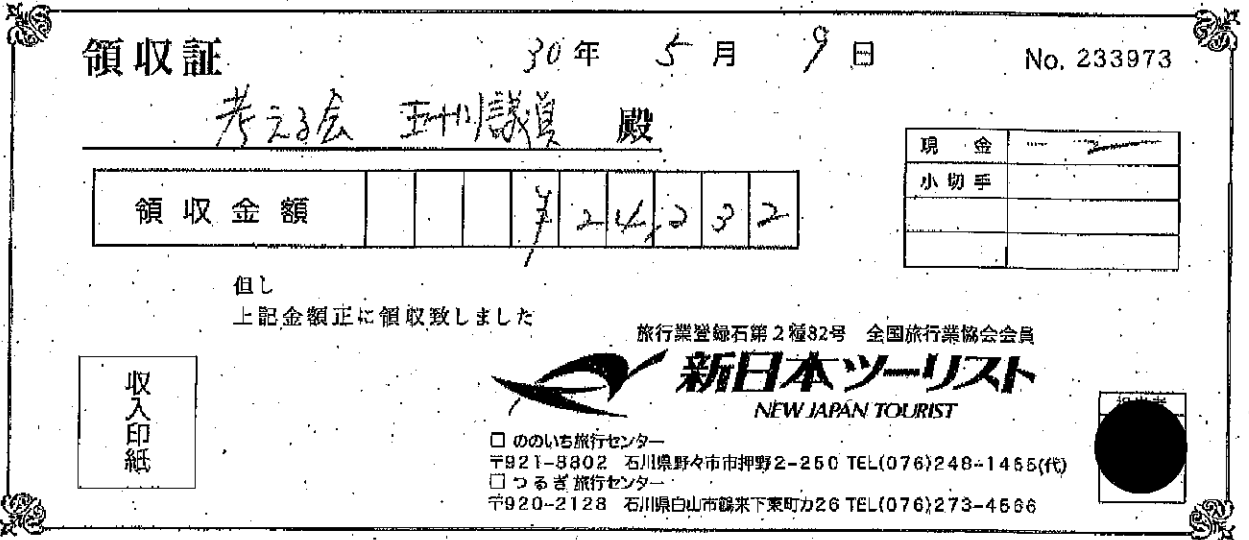 領収証 30年 5月 9日 No. 233973
考える会 五十川議員 殿
現金
小切手
領収金額 ¥24,232
但し
上記金額正に領収致しました
旅行業登録石第2種82号 全国旅行業協会会員
新日本ツーリスト
NEW JAPAN TOURIST
収入印紙
担当者
□ ののいち旅行センター
〒921-8802 石川県野々市市押野2-250 TEL(076)248-1455(代)
□ つるぎ旅行センター
〒920-2128 石川県白山市鶴来下東町カ26 TEL(076)273-4566